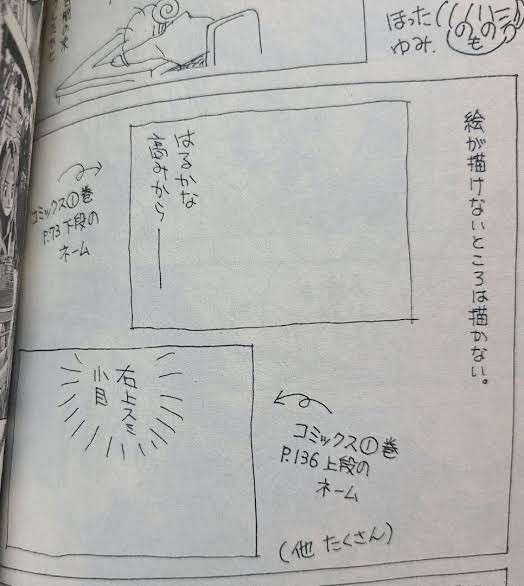 ほった
ゆみ.
のもの
絵が描けないところは描かない。
はるかな
高みから――
コミックス①巻
P.73下段の
ネーム
右上スミ
小目
コミックス①巻
P.136上段の
ネーム
(他 たくさん)